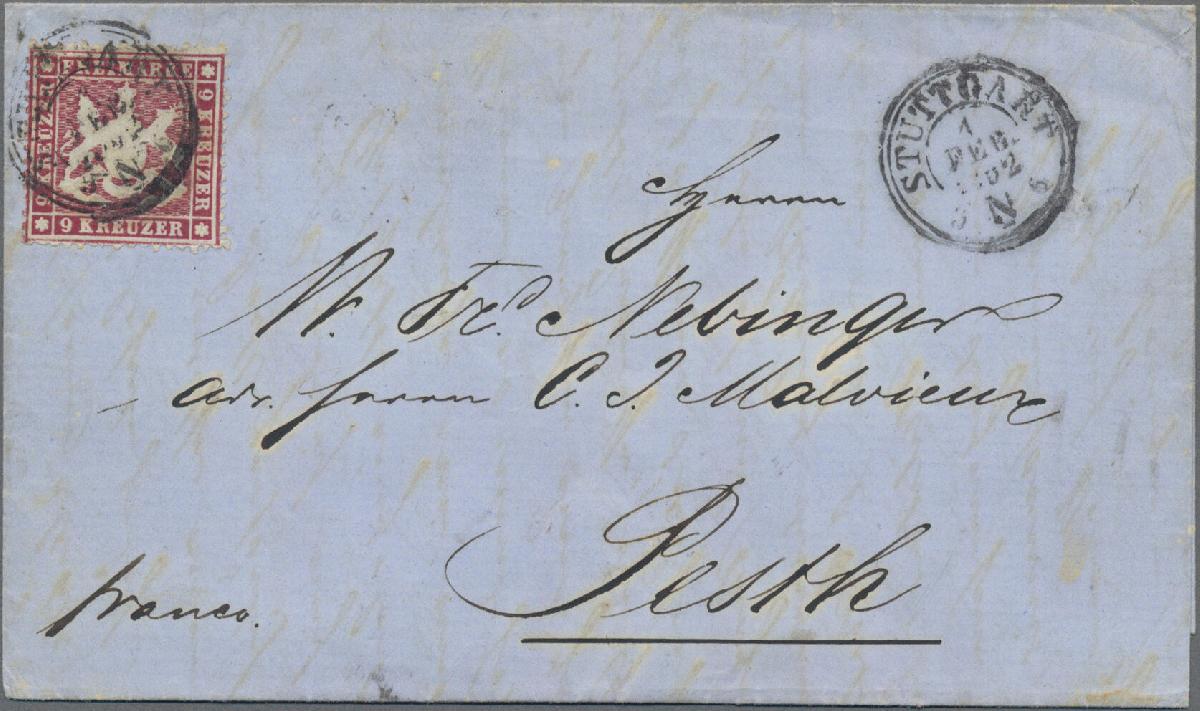 FREIMARKE
9 KREUZER
9 KREUZER
9 KREUZER
STUTTGART
1
FEB.
1862
N 6
Herrn
W. Frd. Nebinger
adr. Herrn C. J. Malvieux
Pesth
franco.